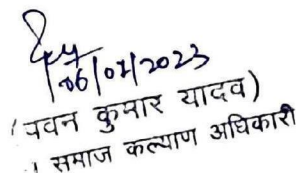 06/07/2023
(पवन कुमार यादव)
समाज कल्याण अधिकारी